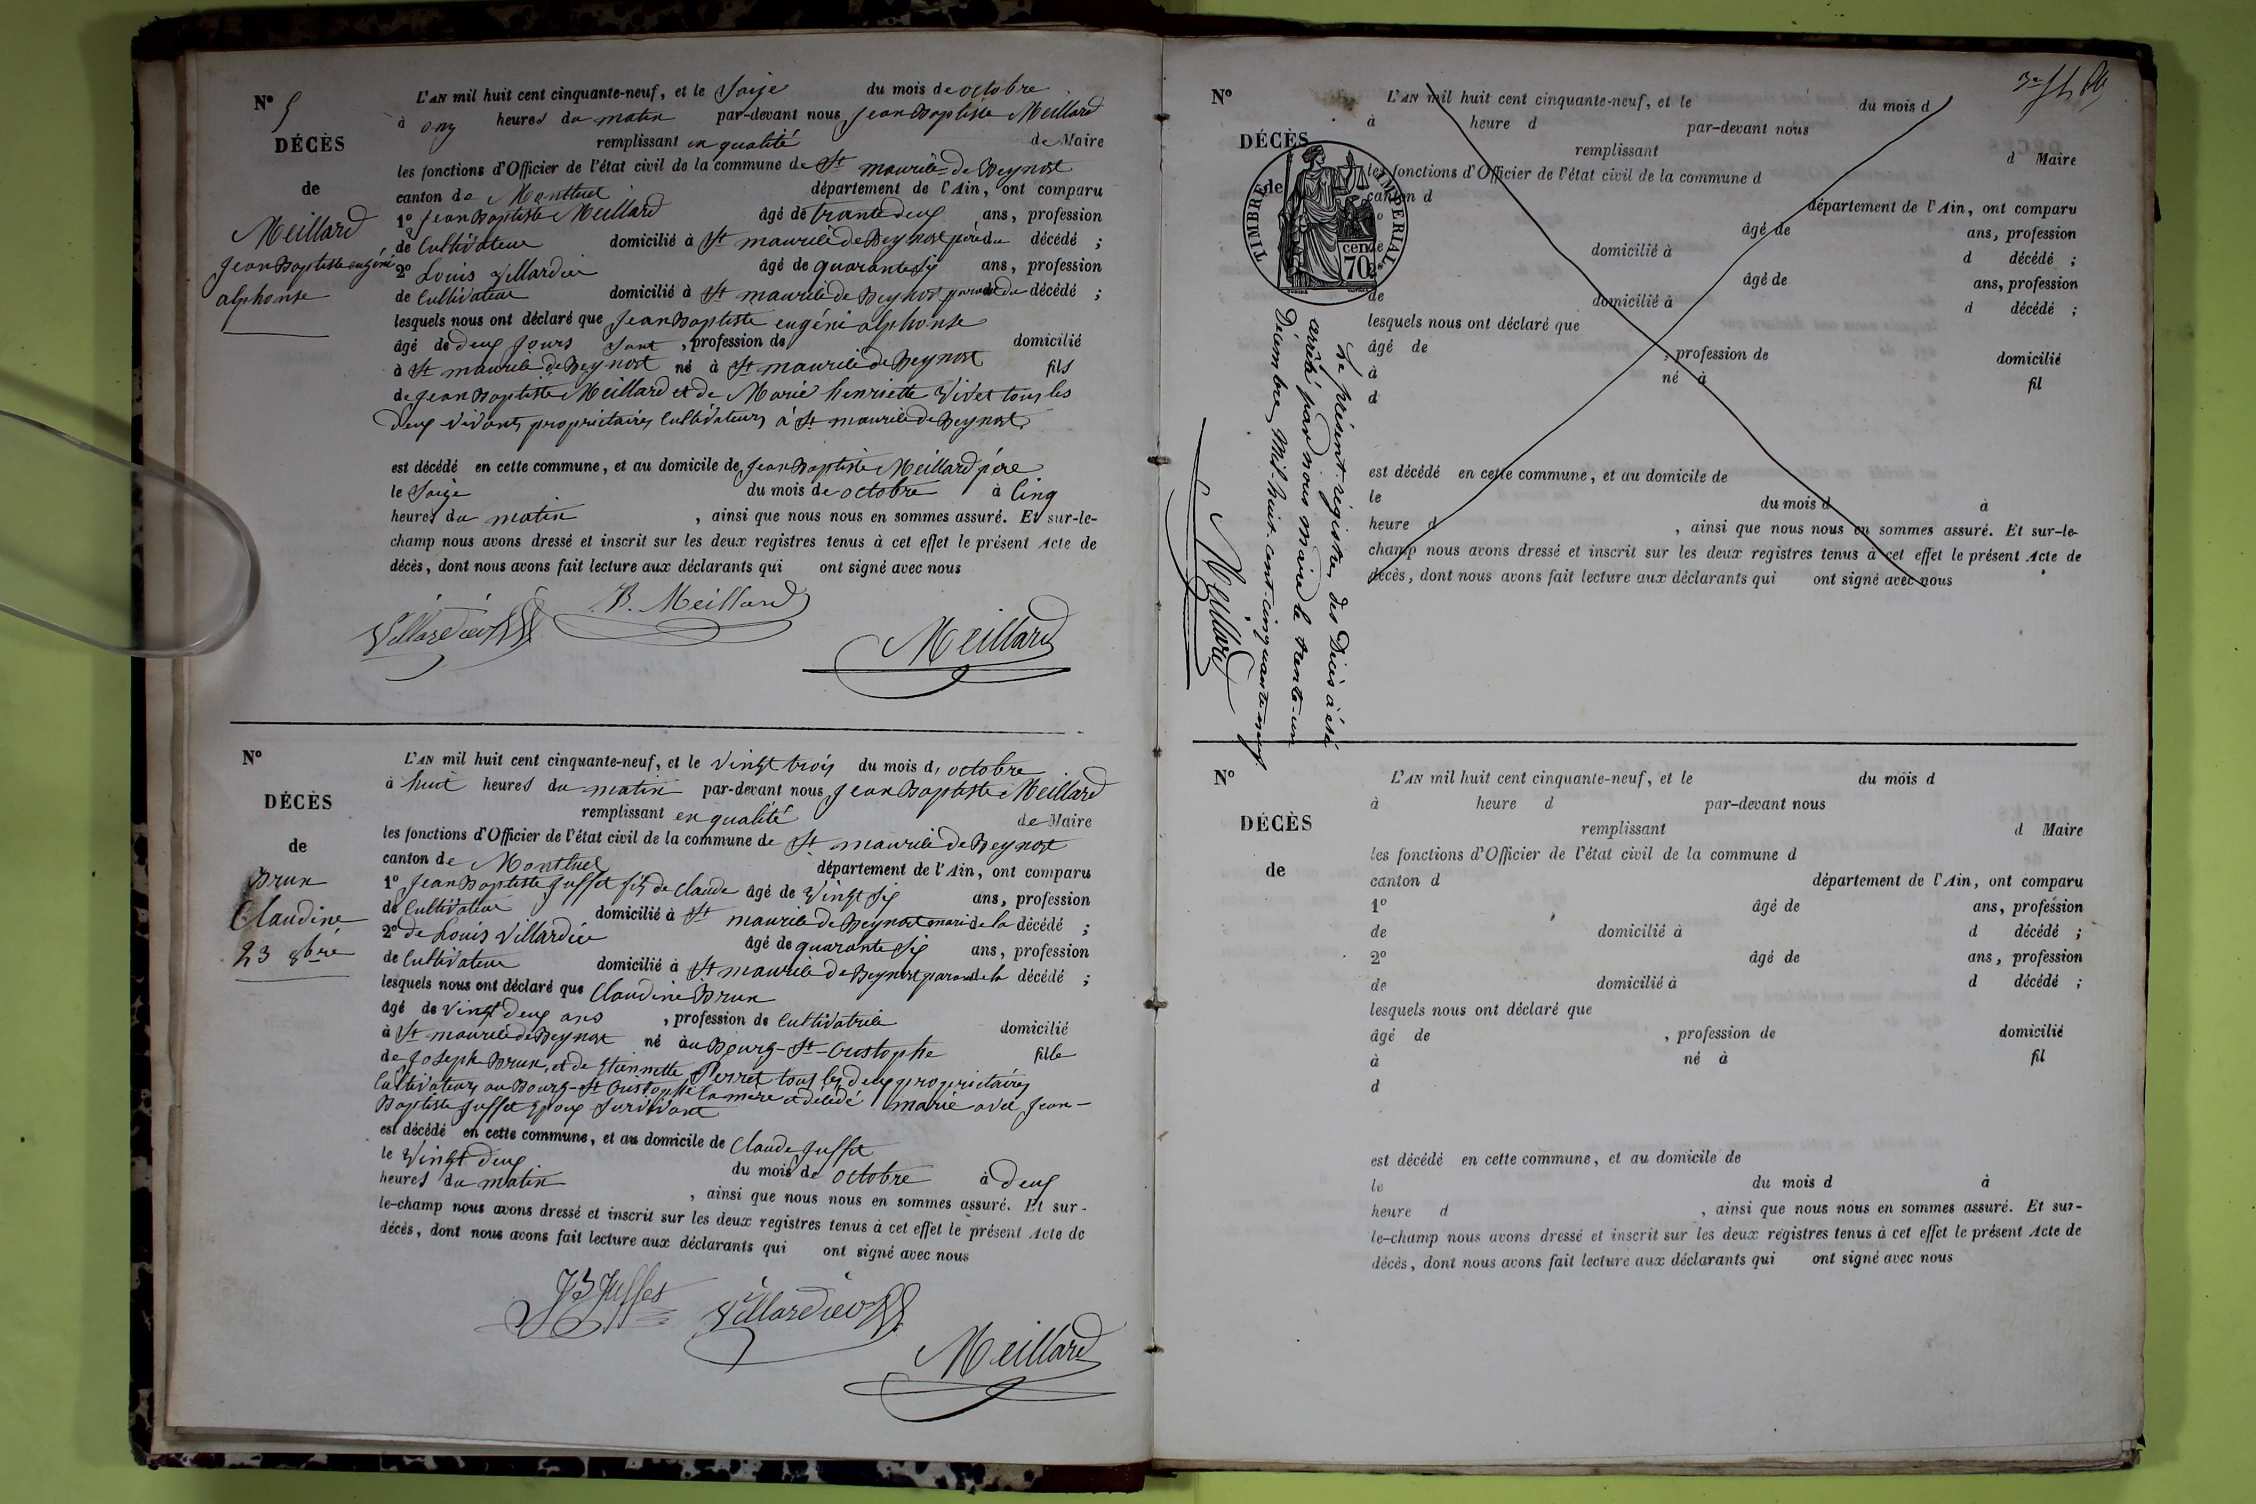 N° 5
DÉCÈS
de
Meillard
Jean Baptiste eugéne
alphonse
L'AN mil huit cent cinquante-neuf, et le Saize du mois de octobre
à onz heures du matin par-devant nous Jean Baptiste Meillard
remplissant en qualité de Maire
les fonctions d'Officier de l'état civil de la commune de St maurice de Beynost
canton de Montluel département de l'Ain, ont comparu
1° Jean Baptiste Meillard âgé de trante deux ans, profession
de Cultivateur domicilié à St maurice de Beynost père du décédé ;
2° Louis Villardier âgé de quarante six ans, profession
de Cultivateur domicilié à St maurice de Beynost du décédé ;
lesquels nous ont déclaré que Jean Baptiste eugéne alphonse
âgé de deux jours , profession de domicilié
à St maurice de Beynost né à St maurice de Beynost fils
de Jean Baptiste Meillard et de Marie henriette Vivet tous les
deux vivants propriétaires Cultivateurs à St maurice de Beynost
est décédé en cette commune, et au domicile de Jean Baptiste Meillard père
le Saize du mois de octobre à Cinq
heures du matin , ainsi que nous nous en sommes assuré. Et sur-le-
champ nous avons dressé et inscrit sur les deux registres tenus à cet effet le présent Acte de
décès, dont nous avons fait lecture aux déclarants qui ont signé avec nous
Villardier B. Meillard
Meillard
N°
DÉCÈS
de
Brun
Claudine
23 8bre
L'AN mil huit cent cinquante-neuf, et le vingt trois du mois d, octobre
à huit heures du matin par-devant nous Jean Baptiste Meillard
remplissant en qualité de Maire
les fonctions d'Officier de l'état civil de la commune de St maurice de Beynost
canton de Montluel département de l'Ain, ont comparu
1° Jean Baptiste Juffet fils de Claude âgé de vingt six ans, profession
de Cultivateur domicilié à St maurice de Beynost mari de la décédé ;
2° de Louis Villardier âgé de quarante six ans, profession
de Cultivateur domicilié à St maurice de Beynost parant de la décédé ;
lesquels nous ont déclaré que Claudine Brun
âgé de vingt deux ans , profession de Cultivatrice
à St maurice de Beynost né au Bourg-St-Cristophe domicilié
de Joseph Brun, et de Etiennette Perret tous les deux propriétaires fille
Cultivateurs au Bourg-St Cristophe la mère décédé marié avec Jean-
Baptiste Juffet Epoux Survivant
est décédé en cette commune, et au domicile de Claude Juffet
le Vingt deux du mois de octobre à deux
heures du matin , ainsi que nous nous en sommes assuré. Et sur-
le-champ nous avons dressé et inscrit sur les deux registres tenus à cet effet le présent Acte de
décès, dont nous avons fait lecture aux déclarants qui ont signé avec nous
JB Juffet Villardier
Meillard
N°
DÉCÈS
de
TIMBRE IMPERIAL
70 cen
L'AN mil huit cent cinquante-neuf, et le du mois d
à heure d par-devant nous
remplissant d Maire
les fonctions d'Officier de l'état civil de la commune d
canton d département de l'Ain, ont comparu
âgé de ans, profession
domicilié à d décédé ;
âgé de ans, profession
de domicilié à d décédé ;
lesquels nous ont déclaré que
âgé de , profession de domicilié
à né à fil
d
est décédé en cette commune, et au domicile de
le du mois d à
heure d , ainsi que nous nous en sommes assuré. Et sur-le-
champ nous avons dressé et inscrit sur les deux registres tenus à cet effet le présent Acte de
décès, dont nous avons fait lecture aux déclarants qui ont signé avec nous
Le présent registre des Décès a été
arrêté par nous maire le trente-un
Décembre Mil-huit-cent-cinquante-neuf
Meillard
N°
DÉCÈS
de
L'AN mil huit cent cinquante-neuf, et le du mois d
à heure d par-devant nous
remplissant d Maire
les fonctions d'Officier de l'état civil de la commune d
canton d département de l'Ain, ont comparu
1° âgé de ans, profession
de domicilié à d décédé ;
2° âgé de ans, profession
de domicilié à d décédé ;
lesquels nous ont déclaré que
âgé de , profession de domicilié
à né à fil
d
est décédé en cette commune, et au domicile de
le du mois d à
heure d , ainsi que nous nous en sommes assuré. Et sur-
le-champ nous avons dressé et inscrit sur les deux registres tenus à cet effet le présent Acte de
décès, dont nous avons fait lecture aux déclarants qui ont signé avec nous